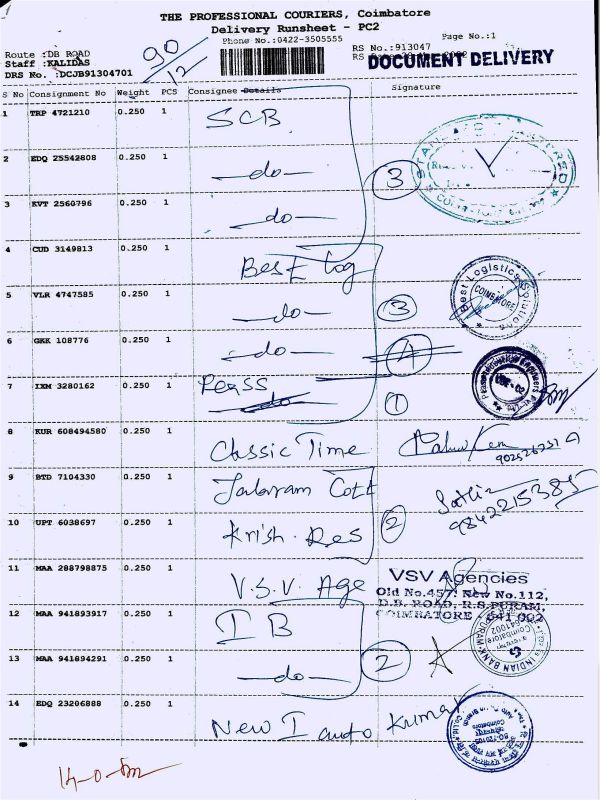 THE PROFESSIONAL COURIERS, Coimbatore
Delivery Runsheet - PC2
Phone No.:0422-3505555
Page No.:1
Route :DB ROAD
Staff :KALIDAS
DRS No. :DCJB91304701
90/12
RS No.:913047
DOCUMENT DELIVERY
S No Consignment No Weight PCS Consignee Details Signature
1 TRP 4721210 0.250 1 SCB
2 EDQ 25542808 0.250 1 -do-
3
3 KVT 2560796 0.250 1 -do-
4 CUD 3149813 0.250 1 Best log
Best Logistics Solutions
COIMBATORE
5 VLR 4747585 0.250 1 -do-
3
6 GKK 108776 0.250 1 -do-
4
7 IXM 3280162 0.250 1 Peass
do
1
8 KUR 608494580 0.250 1 Classic Time
9 BTD 7104330 0.250 1 Jalaram Cott
9842215385
10 UPT 6038697 0.250 1 Krish. Res
2
11 MAA 288798875 0.250 1 V.S.V. Age
VSV Agencies
Old No.457, New No.112,
D.B. ROAD, R.S.PURAM,
COIMBATORE - 641 002
12 MAA 941893917 0.250 1 I B
INDIAN BANK
13 MAA 941894291 0.250 1 -do-
2
14 EDQ 23206888 0.250 1 New I auto Kumar